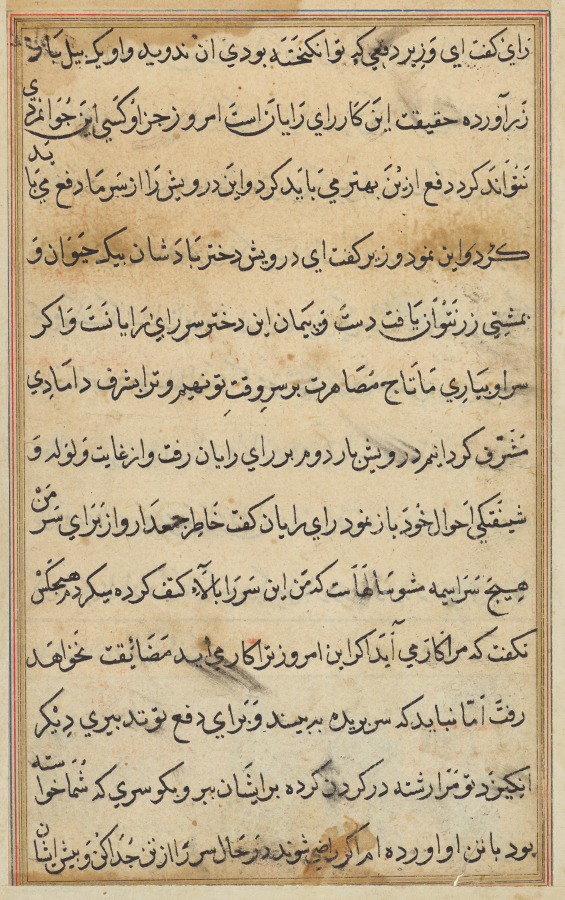 رای گفت ای وزیر دفعی که تو انگیخته بودی ان ندوید و او یک پیل بار
زر آورده حقیقت این کار رای رایان است امروز جز او کسی این جوانمردی
نتواند کرد دفع ازین بهتر می باید کرد و این درویش را از سر ما دفع می باید
کرد و این نمود وزیر گفت ای درویش دختر بادشان بیک حیوان و
بمشتی زر نتوان یافت دست و پیمان این دختر سر رای رایانست و اکر
سر او بیاری ما تاج مصاهرت بر سر وقت تو نهیم و ترا بشرف دامادی
مشرف کردانیم درویش بار دوم بر رای رایان رفت و از غایت ولوله و
شیفتکی احوال خود باز نمود رای رایان کفت خاطر جمع دار و از برای سر من
هیچ سراسیمه مشو سالهاست که من این سر را بالاء کتف کرده میکردم هیچکس
نکفت که مرا کار می آید اکر این امروز ترا کار می اید مضائقت نخواهد
رفت اما نباید که سر بریده ببینند و برای دفع تو تدبیری دیکر
انکیزد تو مرا رشته در کردن کرده بر ایشان ببر و بکو سری که شما خواسته
بود با تن او اورده ام اکر راضی شوند در حال سر را از تن جدا کن و پیش ایشان